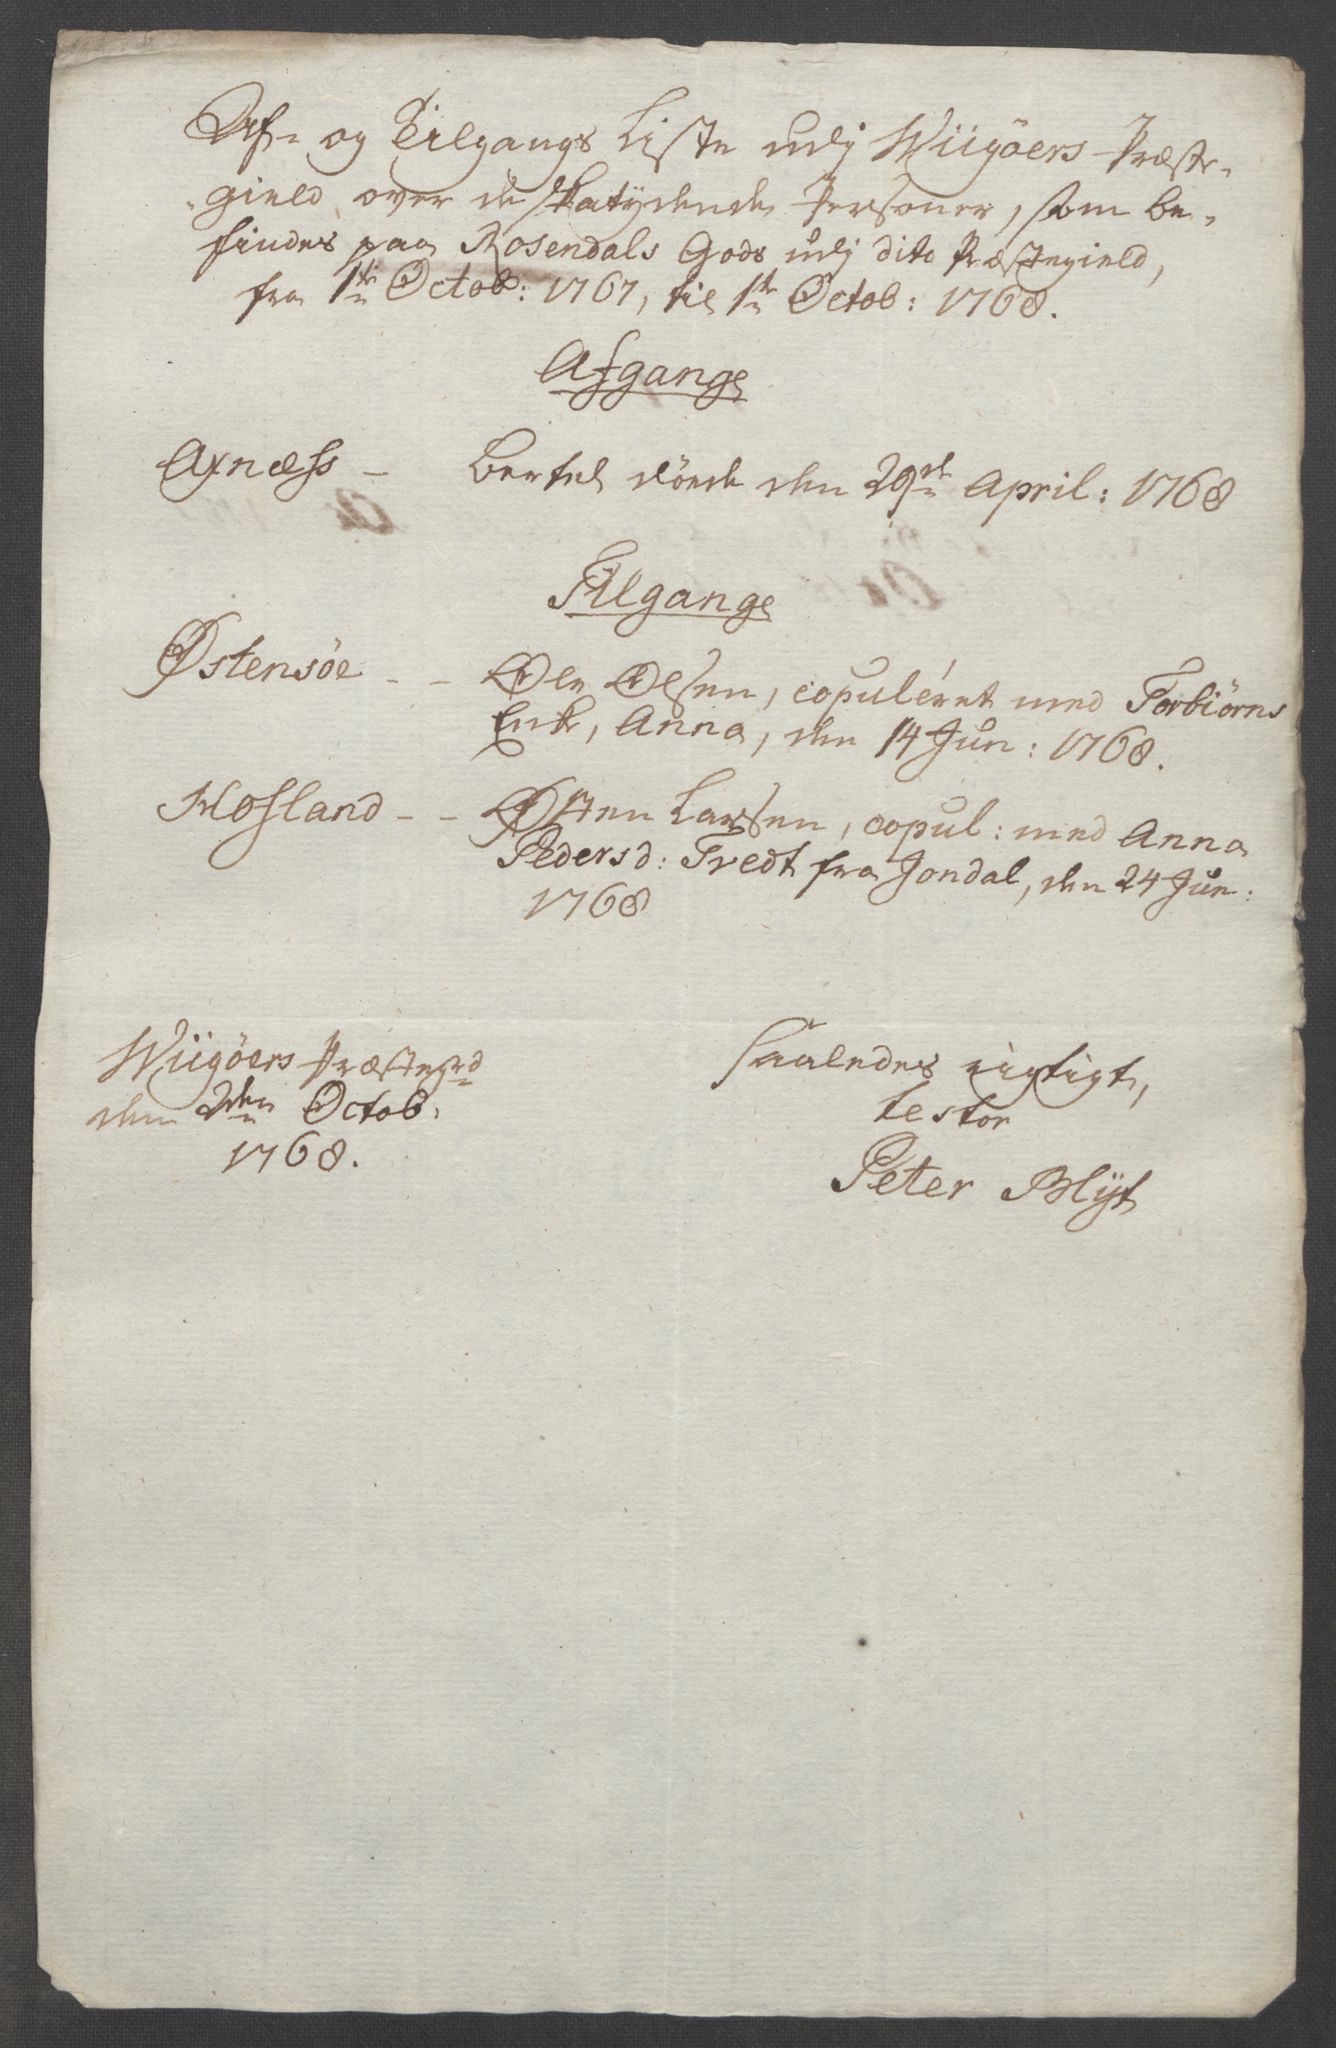 Af- og Tilgangs Liste udj Wiigöers Præste-
-gield over de skatydende Personer, som be-
findes paa Rosendals Gods udj dito Præstegield,
fra 1te Octob: 1767, til 1te Octob: 1768.
Afgange
Axnæss - Bertel döede den 29de April: 1768
Tilgange
Østensöe - - Ole Olsen, copuléret med Torbiörns
Enke, Anna, den 14 Jun: 1768.
Mosland - - Østen Larsen, copul: med Anna
Pedersd: Tvedt fra Jondal, den 24 Jun:
1768
Wiigöers Præstegrd
den 2den Octob.
1768.
Saaledes rigtigt,
testor
Peter Blyt